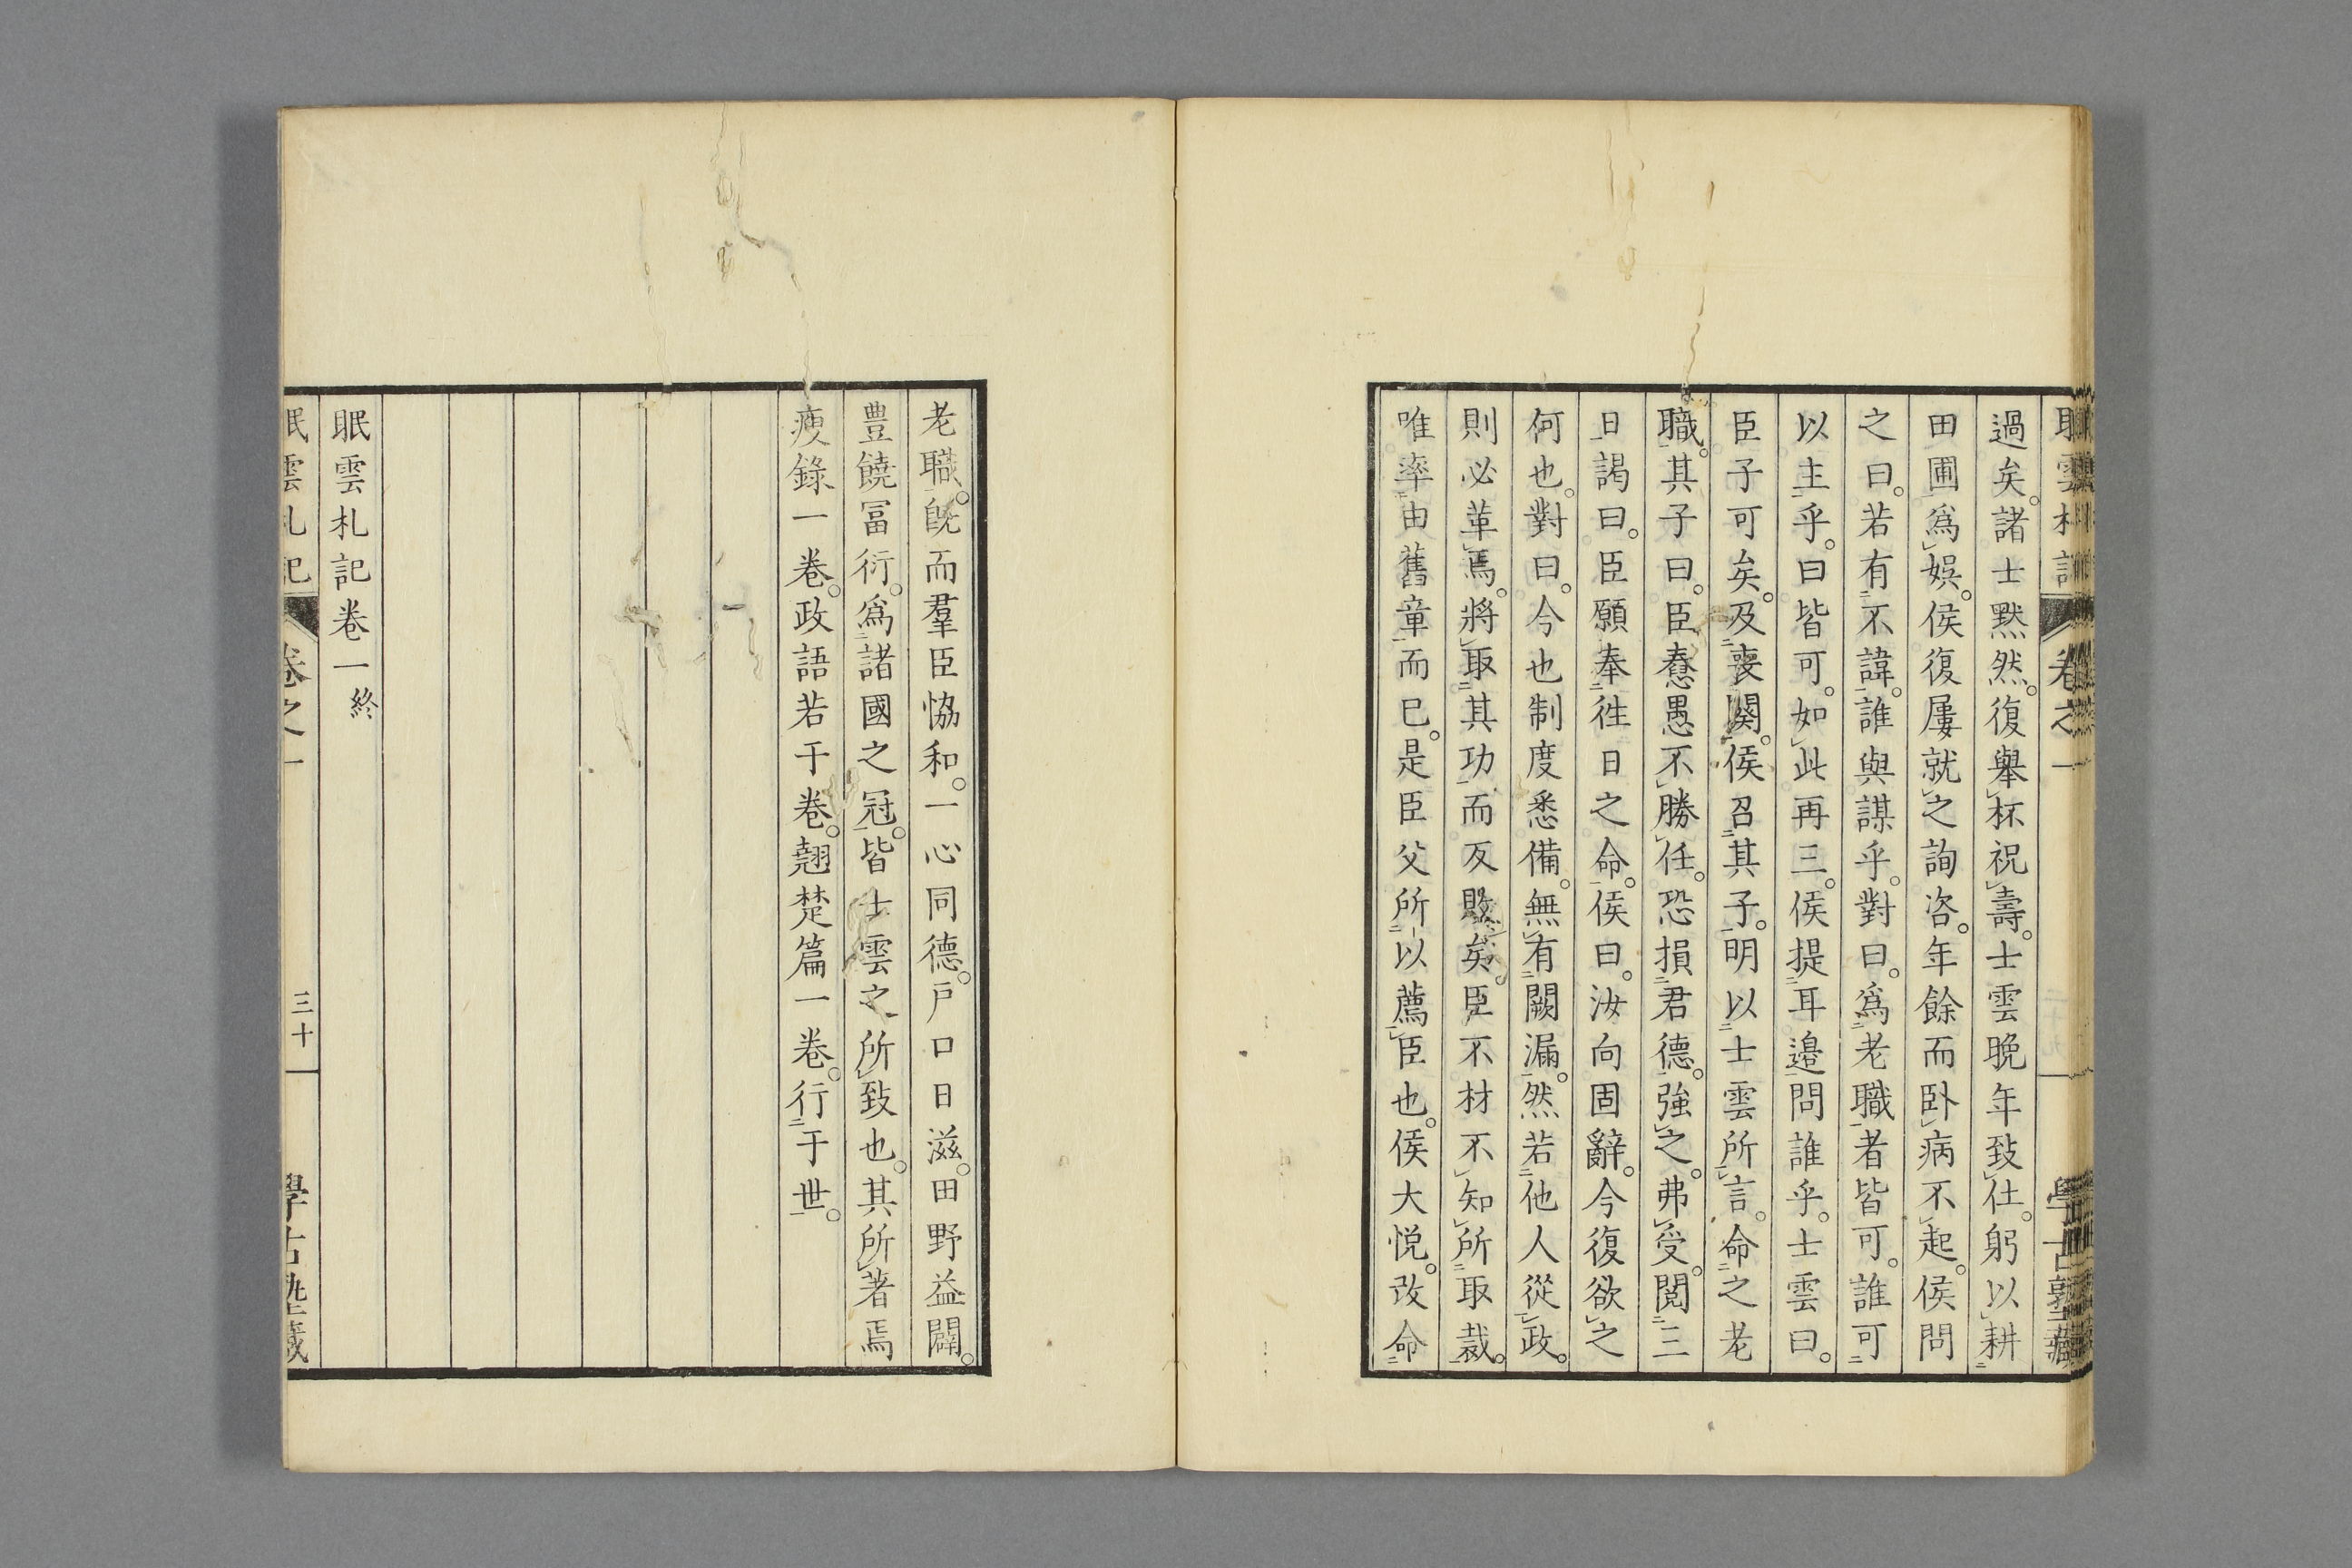 眠雲札記 卷之一 學古塾藏
過矣。諸士默然。復舉杯祝壽。士雲晩年致仕。躬以耕
田圃爲娯。侯復屢就之詢咨。年餘而臥病不起。侯問
之曰。若有不諱。誰與謀乎。對曰。爲老職者皆可。誰可
以主乎。曰皆可。如此再三。侯提耳邉問誰乎。士雲曰。
臣子可矣。及喪闋。侯召其子。明以士雲所言。命之老
職。其子曰。臣惷愚不勝任。恐損君德。強之。弗受。閲三
日謁曰。臣願奉徃日之命。侯曰。汝向固辭。今復欲之
何也。對曰。今也制度悉備。無有闕漏。然若他人從政。
則必革焉。將取其功而反敗矣。臣不材不知所取裁。
唯率由舊章而已。是臣父所以薦臣也。侯大悦。改命
老職。既而羣臣恊和。一心同德。戸口日滋。田野益闢。
豊饒冨衍。爲諸國之冠。皆士雲之所致也。其所著焉
瘦錄一卷。政語若干卷。翹楚篇一卷。行于世。
眠雲札記卷一終
眠雲札記 卷之一 三十 學古塾藏